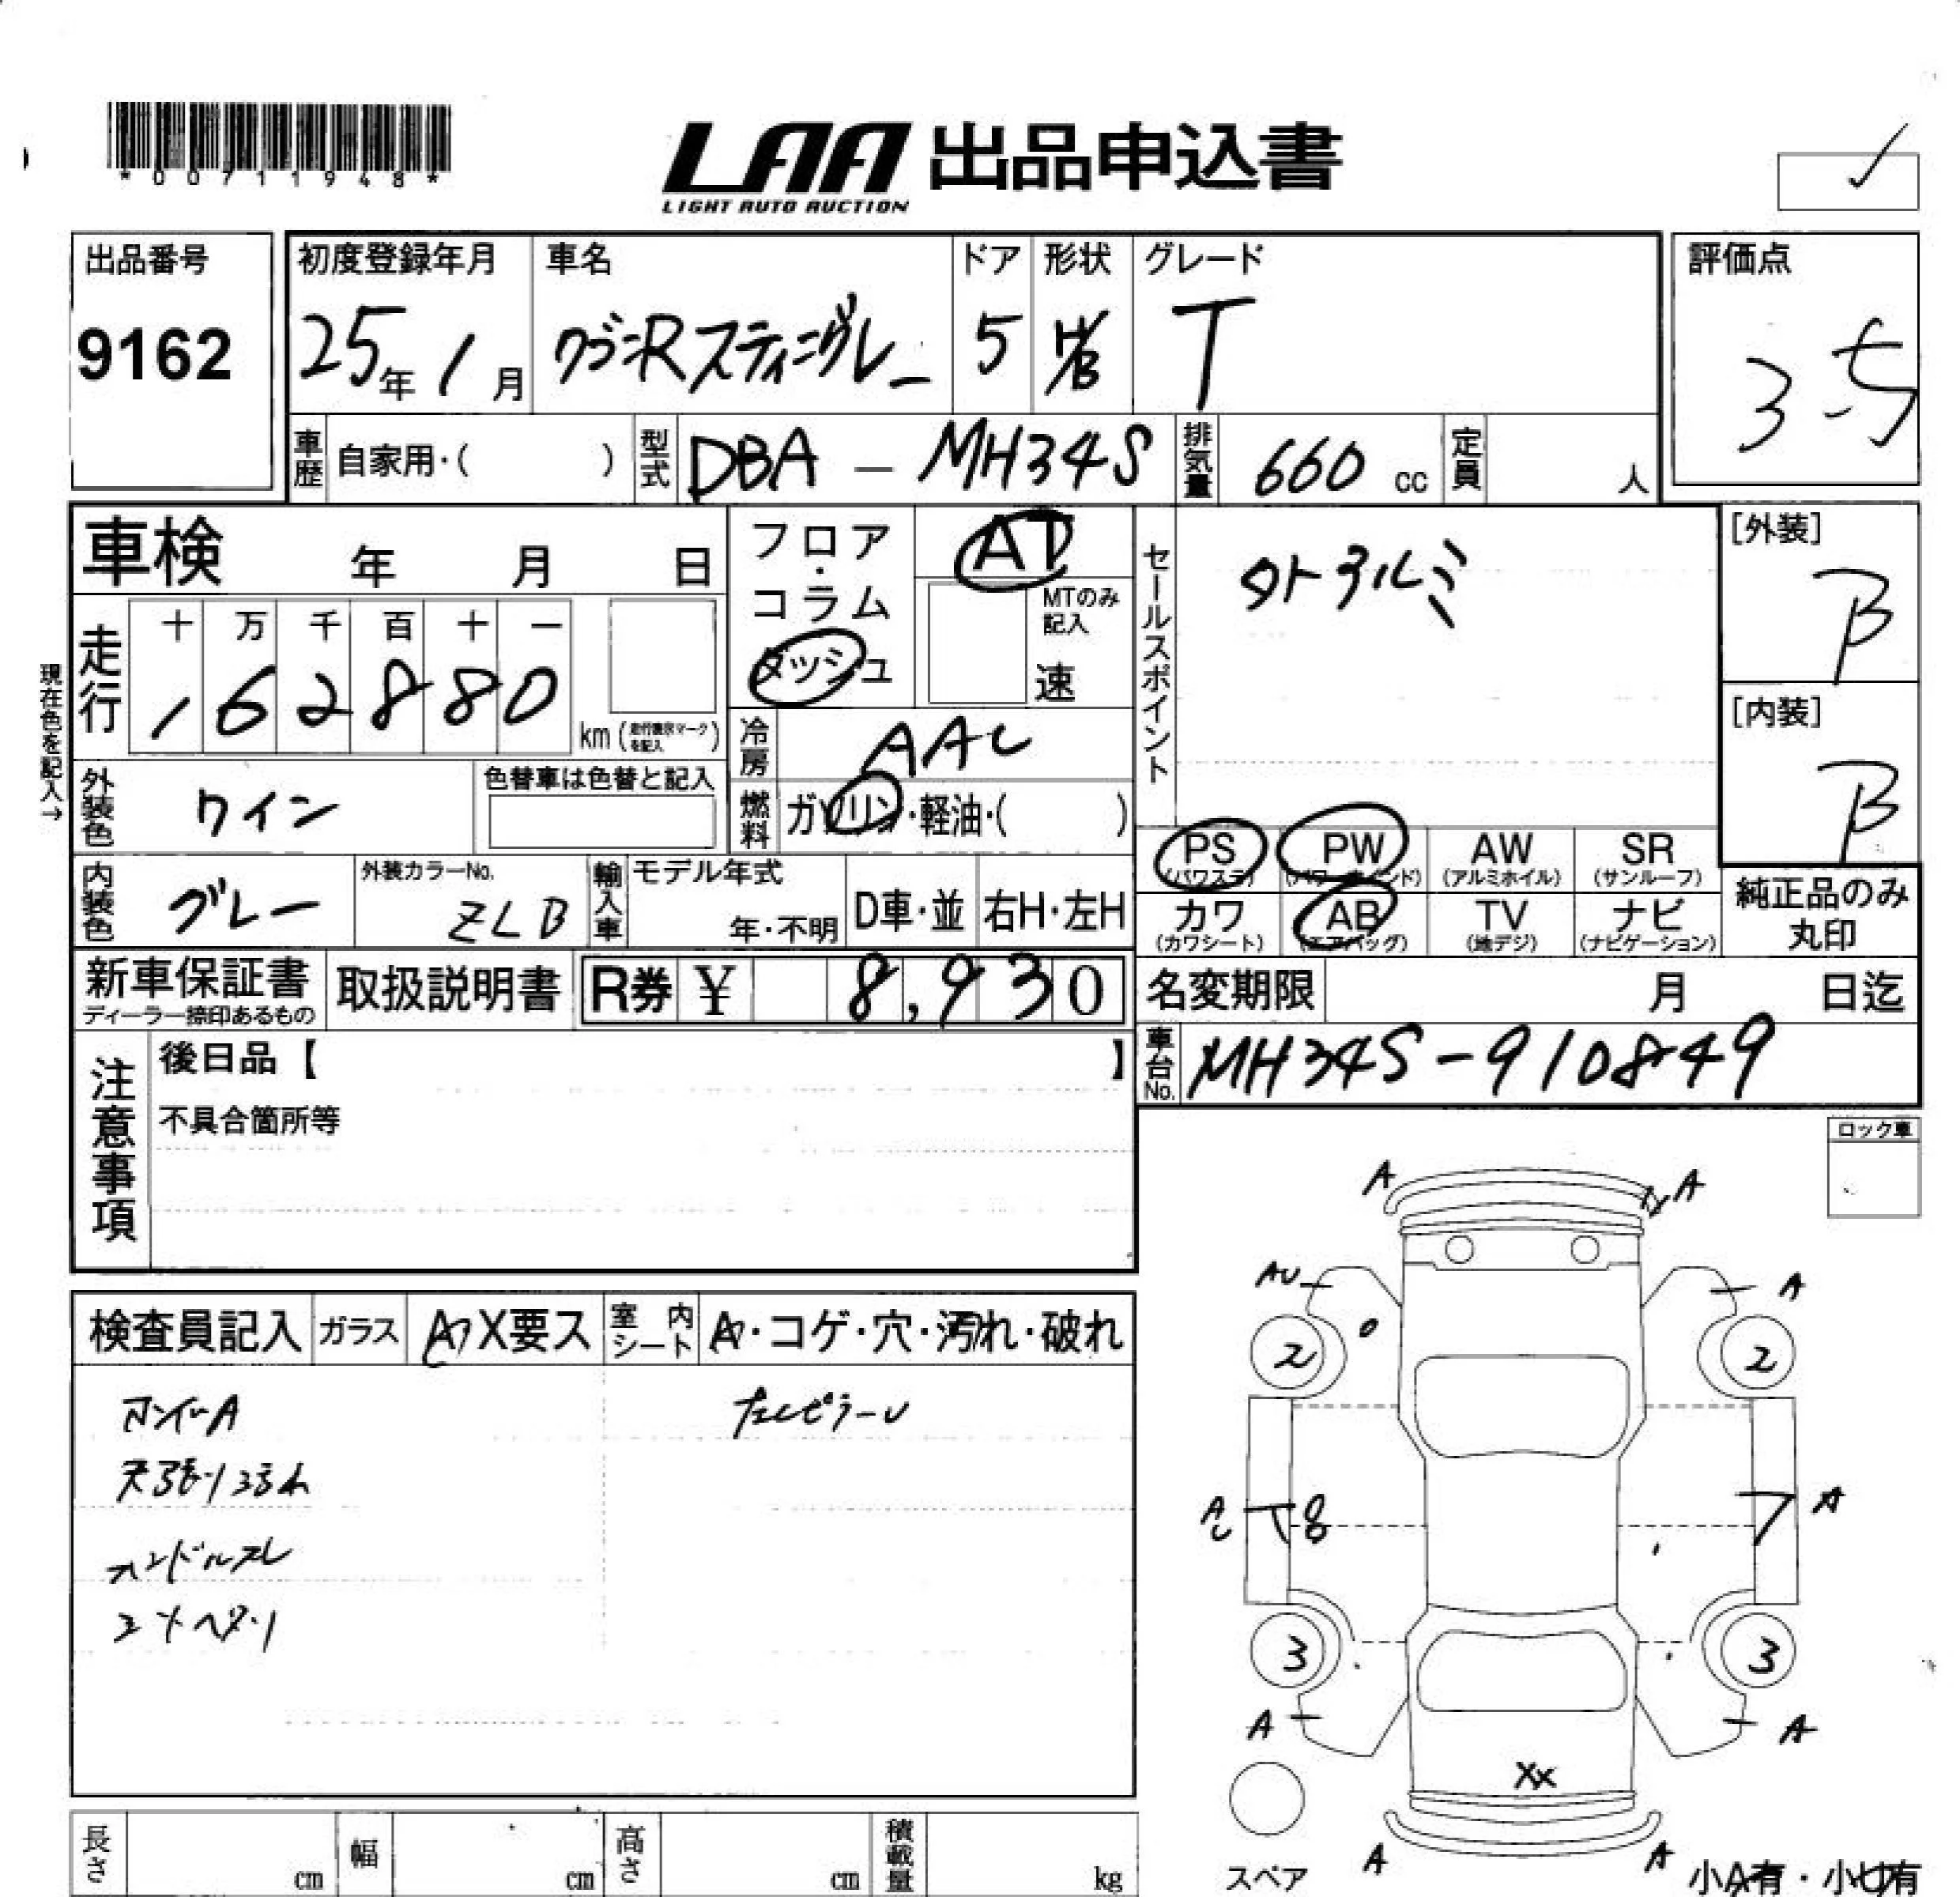 *00711948*
LAA 出品申込書
LIGHT AUTO AUCTION
出品番号
9162
初度登録年月
25年 1月
車名
ワゴンRスティングレー
ドア
5
形状
H/B
グレード
T
評価点
3.5
車歴 自家用・( )
型式 DBA - MH34S
排気量 660 cc
定員 人
車検 年 月 日
フロア・コラム
ダッシュ
AT
MTのみ記入
速
セールスポイント
外アルミ
[外装]
B
[内装]
B
現在色を記入→
走行
十 万 千 百 十 一
1 6 2 8 8 0
km (走行表示マークを記入)
冷房 AAC
外装色 ワイン
色替車は色替と記入
燃料 ガソリン・軽油・( )
PS (パワステ)
PW (パワーウィンド)
AW (アルミホイル)
SR (サンルーフ)
内装色 グレー
外装カラーNo.
ZLB
輸入車
モデル年式
年・不明
D車・並
右H・左H
カワ (カワシート)
AB (エアバッグ)
TV (地デジ)
ナビ (ナビゲーション)
純正品のみ丸印
新車保証書
ディーラー捺印あるもの
取扱説明書
R券 ¥ 8,930
名変期限 月 日迄
車台No. MH34S-910849
注意事項
後日品【 】
不具合箇所等
ロック車
検査員記入
ガラス
A X要ス
室内シート
A・コゲ・穴・汚れ・破れ
天張り汚れ
ハンドルスレ
A
A
AU
A
2
2
A
8
A
3
3
A
A
XX
A
A
スペア
小A有・小U有
長さ cm
幅 cm
高さ cm
積載量 kg